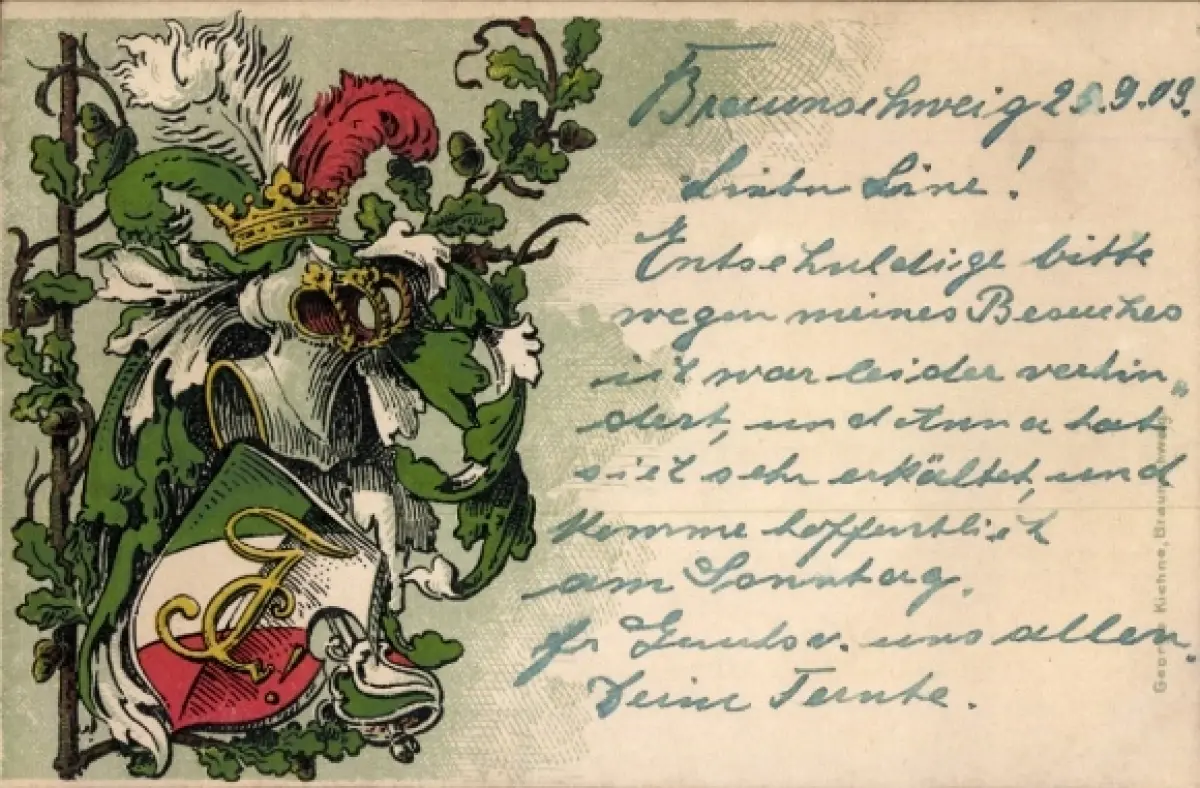 Braunschweig 25.9.09.
Entschuldige bitte
wegen meines Besuches
ich war leider verhin„
dert, und Anna hat
sich sehr erkältet, und
komme hoffentlich
am Sonntag.
uns allen.
Deine
Georg Kiehne, Braunschweig